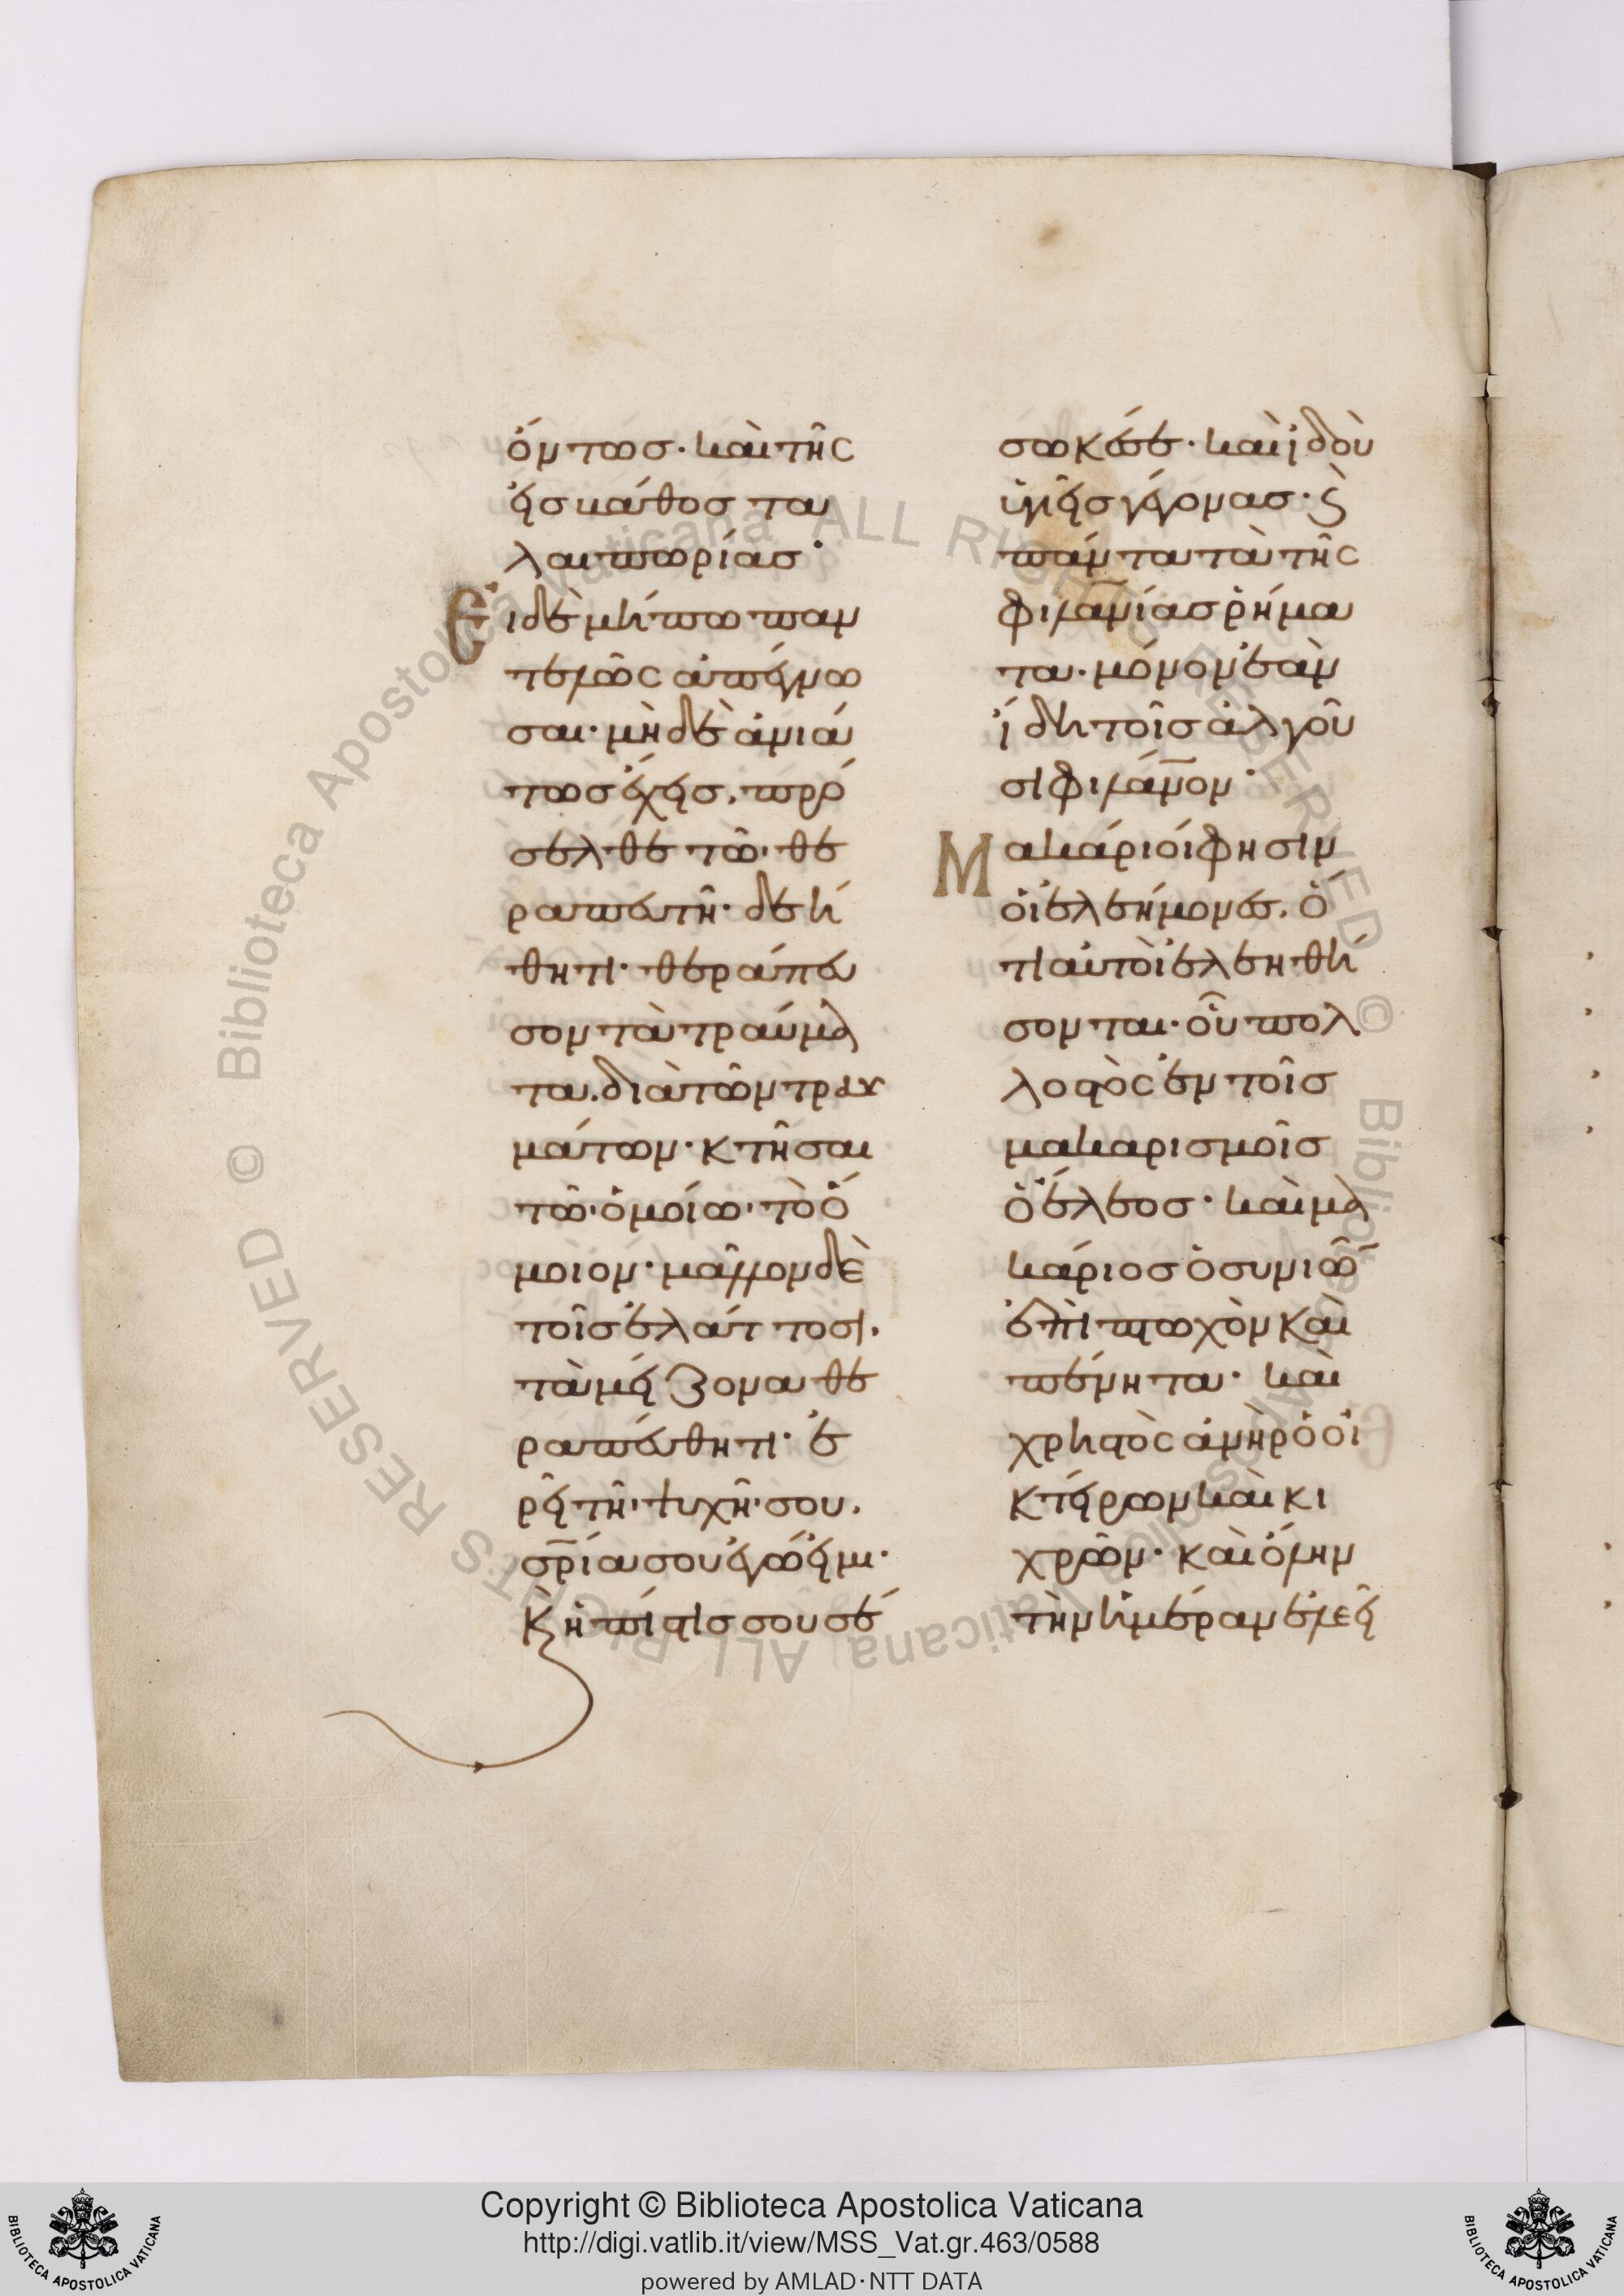 ὄντως· καὶ τῆς
ἐσκάθος ται
λαιπωρίας·
Εἰ δὲ μήπω παν
τελῶς ἀπέγνω
σαι· μὴδὲ ἀνιά
τως ἔχεις, πρό
σελθε τῶ θε
ραπευτῆ· δεή
θητι· θεράπευ
σον τὰ τραύμα
τα. διὰ τῶν τραυ
μάτων· κτῆσαι
τῶ ὁμοίω τὸ ὅ
μοιον· μᾶλλον δὲ
τοῖς ἐλάττοσι,
τὰ μείζονα θε
ραπεύθητι· ἐ
ρεῖ τῆ ψυχῆ σου,
σρία σου ἐγώ εἰμι·
κ ἡ πίστις σου σέ
σωκέ σε· καὶ ἰδοὺ
ὑγιὴς γέγονας· κ
πάντα τὰ τῆς
φιλανίας ῥήμα
τα· μόνον ἐὰν
ἴδη τοῖς ἀλγοῦ
σι φιλάνον·
Μακάριοί φησιν
οἱ ἐλεήμονες, ὅ
τι αὐτοὶ ἐλεηθή
σονται· οὐ πολ
λοστὸς ἐν τοῖς
μακαρισμοῖς
ὁ ἔλεος· καὶ μα
κάριος ὁ συνιῶν
ἐπὶ πτωχὸν καὶ
πένητα· καὶ
χρηστὸς ἀνὴρ ὁ οἰ
κτείρων καὶ κι
χρῶν· καὶ ὅλην
τὴν ἡμέραν ἐλεεῖ
Copyright © Biblioteca Apostolica Vaticana
http://digi.vatlib.it/view/MSS_Vat.gr.463/0588
powered by AMLAD·NTT DATA
BIBLIOTECA APOSTOLICA VATICANA
BIBLIOTECA APOSTOLICA VATICANA
© Biblioteca Apostolica Vaticana ALL RIGHTS RESERVED © Biblioteca Apostolica Vaticana ALL RIGHTS RESERVED